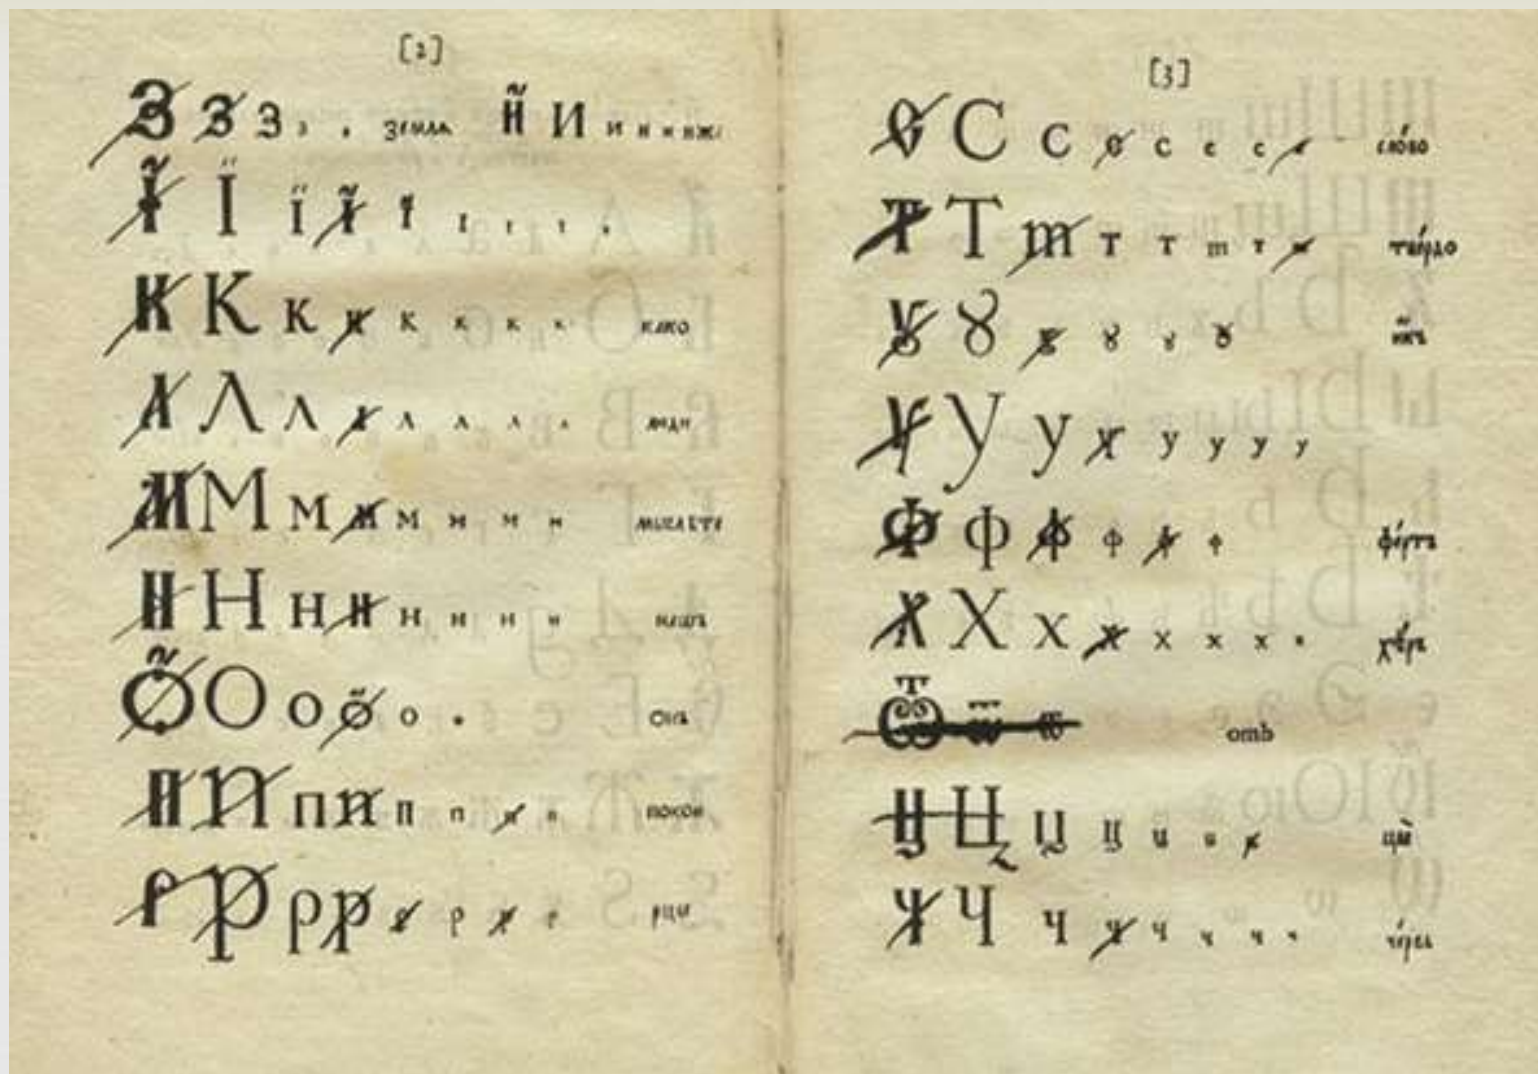 [2]
З З З з з земля И И и и и иже
Ї Ї ї ї ї ї ї ї ї
К К к к к к к к како
Л Л л л л л л л люди
М М м м м м м м мыслѣте
Н Н н н н н н н нашъ
О О о о о о онъ
П П п п п п п п покои
Р Р р р р р р р рцы
[3]
С С с с с с с с слово
Т Т т т т т т т твердо
Ꙋ Ꙋ ꙋ ꙋ ꙋ ꙋ икъ
У У у у у у у у
Ф ф ф ф ф ф фертъ
Х Х х х х х х х хѣръ
Ѿ ѿ ѿ отъ
Ц Ц ц ц ц ц ц цы
Ч Ч ч ч ч ч ч ч червь